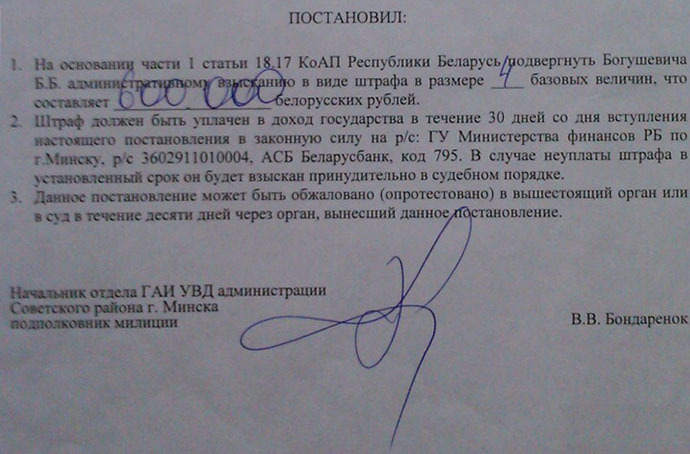 ПОСТАНОВИЛ:
1. На основании части 1 статьи 18.17 КоАП Республики Беларусь подвергнуть Богушевича
Б.Б. административному взысканию в виде штрафа в размере 4 базовых величин, что
составляет 600 000 белорусских рублей.
2. Штраф должен быть уплачен в доход государства в течение 30 дней со дня вступления
настоящего постановления в законную силу на р/с: ГУ Министерства финансов РБ по
г.Минску, р/с 3602911010004, АСБ Беларусбанк, код 795. В случае неуплаты штрафа в
установленный срок он будет взыскан принудительно в судебном порядке.
3. Данное постановление может быть обжаловано (опротестовано) в вышестоящий орган или
в суд в течение десяти дней через орган, вынесший данное постановление.
Начальник отдела ГАИ УВД администрации
Советского района г. Минска
подполковник милиции В.В. Бондаренок